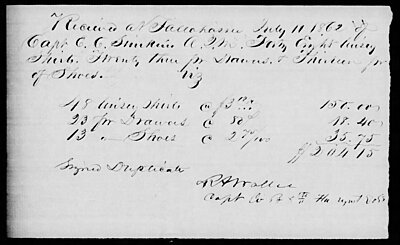 Received at Tallahassee July 11 1862 of
Capt. E. C. Simkins A.Q.M. Forty Eight
Shirts Twenty three pr Drawers & Thirteen pr
of Shoes. Viz
48 Shirts @ $3
23 pr Drawers @ 80¢ 18.40
13 " Shoes @ 2.75 35.75
$204.15
Signed Duplicate
Capt Co